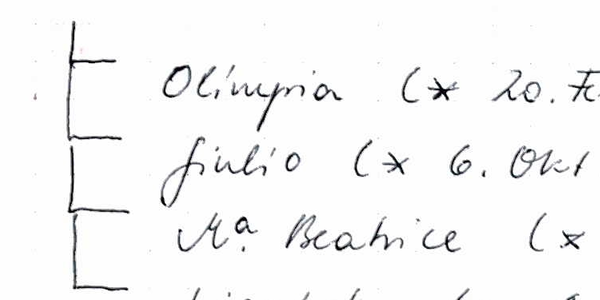 Olimpia (* 20. Fe
Giulio (* 6. Okt
Mª. Beatrice (*